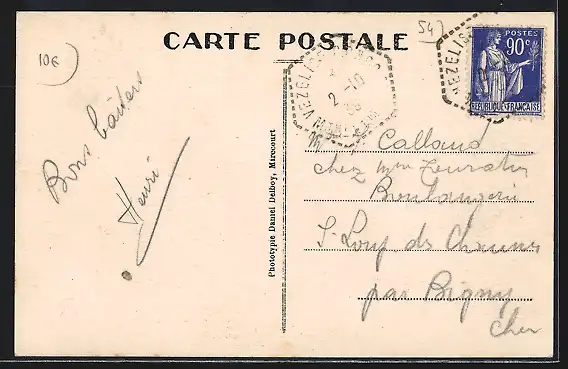 10€
54
CARTE POSTALE
POSTES
90c
REPUBLIQUE FRANCAISE
VEZELISE
2-10
38
VEZELIS
Bons baisers
Henri
Phototypie Daniel Delboy, Mirecourt
Callaud
chez Mme
Boulangerie
St Loup des Chaumes
par Bigny
Cher